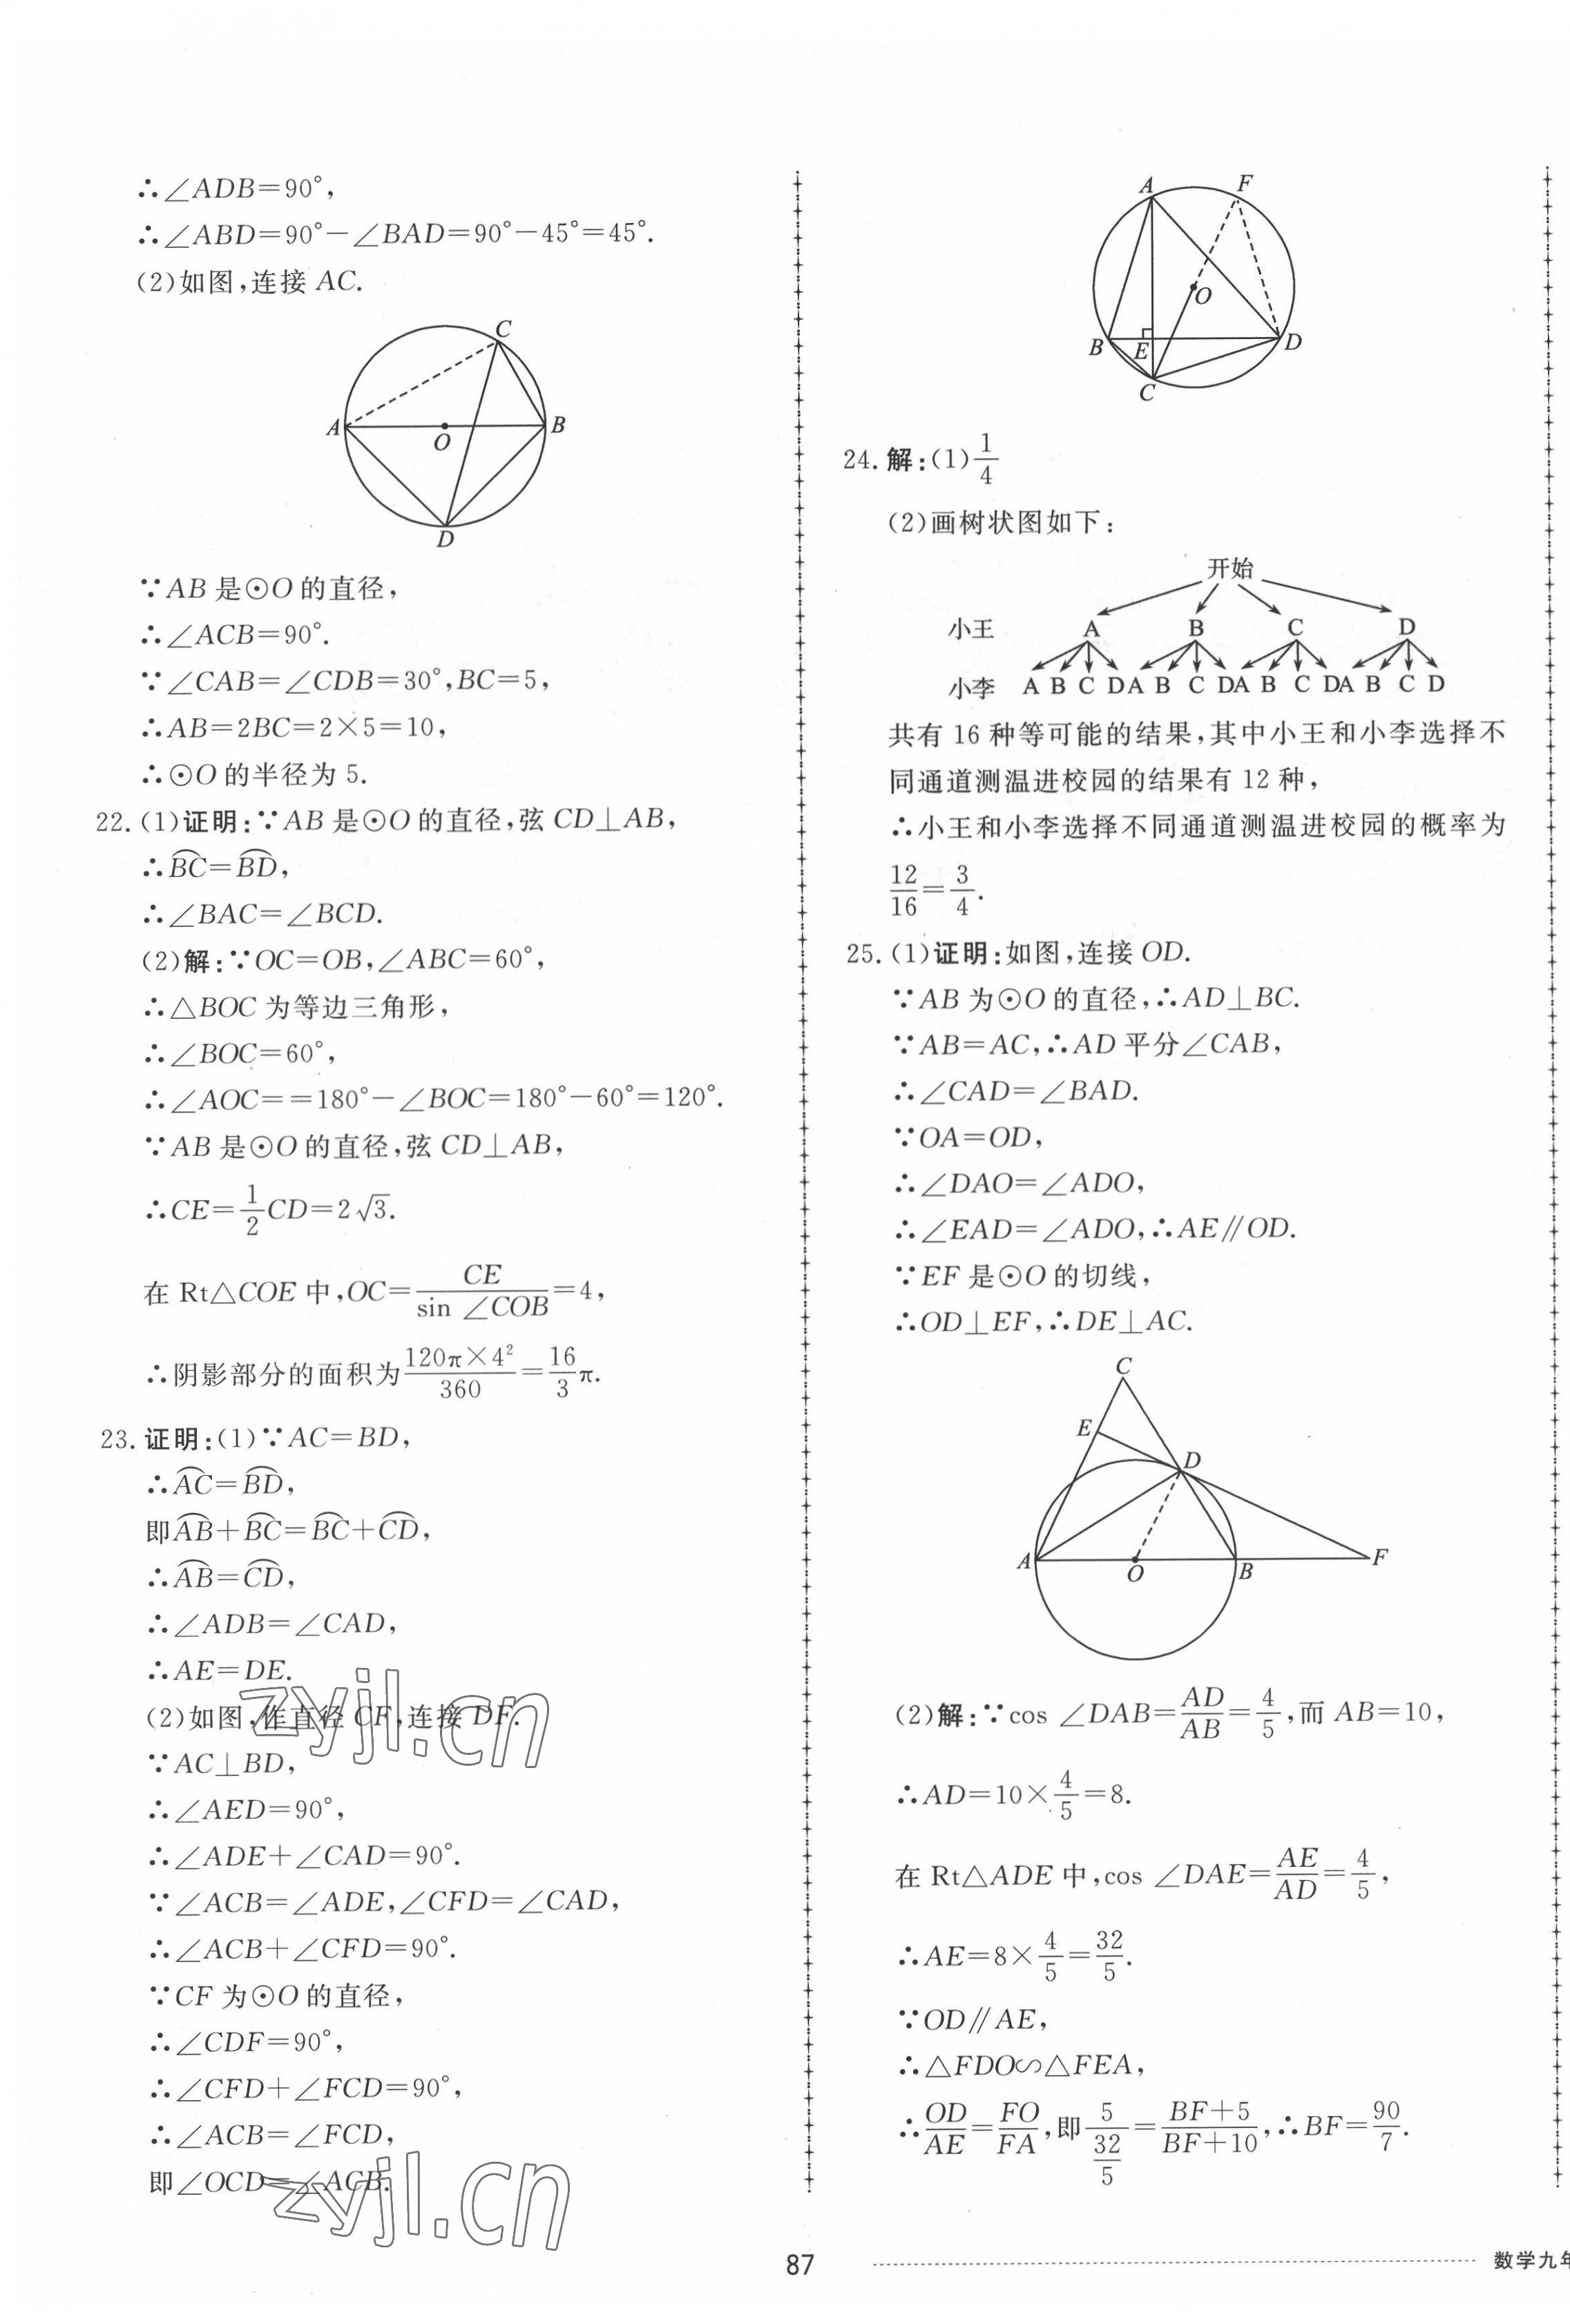 ∴∠ADB=90°,
∴∠ABD=90°-∠BAD=90°-45°=45°.
(2)如图,连接 AC.
C
A
O
B
D
∵AB 是⊙O 的直径,
∴∠ACB=90°.
∵∠CAB=∠CDB=30°,BC=5,
∴AB=2BC=2×5=10,
∴⊙O 的半径为 5.
22.(1)证明:∵AB 是⊙O 的直径,弦 CD⊥AB,
∴⌒BC=⌒BD,
∴∠BAC=∠BCD.
(2)解:∵OC=OB,∠ABC=60°,
∴△BOC 为等边三角形,
∴∠BOC=60°,
∴∠AOC==180°-∠BOC=180°-60°=120°.
∵AB 是⊙O 的直径,弦 CD⊥AB,
∴CE=1/2CD=2√3.
在 Rt△COE 中,OC=CE/sin ∠COB=4,
∴阴影部分的面积为120π×4²/360=16/3π.
23.证明:(1)∵AC=BD,
∴⌒AC=⌒BD,
即⌒AB+⌒BC=⌒BC+⌒CD,
∴⌒AB=⌒CD,
∴∠ADB=∠CAD,
∴AE=DE.
(2)如图,作直径 CF,连接 DF.
∵AC⊥BD,
∴∠AED=90°,
∴∠ADE+∠CAD=90°.
∵∠ACB=∠ADE,∠CFD=∠CAD,
∴∠ACB+∠CFD=90°.
∵CF 为⊙O 的直径,
∴∠CDF=90°,
∴∠CFD+∠FCD=90°,
∴∠ACB=∠FCD,
即∠OCD=∠ACB.
zyjl.cn
zyjl.cn
A F
O
B E D
C
24.解:(1)1/4
(2)画树状图如下:
开始
小王 A B C D
小李 A B C D A B C D A B C D A B C D
共有 16 种等可能的结果,其中小王和小李选择不
同通道测温进校园的结果有 12 种,
∴小王和小李选择不同通道测温进校园的概率为
12/16=3/4.
25.(1)证明:如图,连接 OD.
∵AB 为⊙O 的直径,∴AD⊥BC.
∵AB=AC,∴AD 平分∠CAB,
∴∠CAD=∠BAD.
∵OA=OD,
∴∠DAO=∠ADO,
∴∠EAD=∠ADO,∴AE∥OD.
∵EF 是⊙O 的切线,
∴OD⊥EF,∴DE⊥AC.
C
E
D
A O B F
(2)解:∵cos ∠DAB=AD/AB=4/5,而 AB=10,
∴AD=10×4/5=8.
在 Rt△ADE 中,cos ∠DAE=AE/AD=4/5,
∴AE=8×4/5=32/5.
∵OD∥AE,
∴△FDO∽△FEA,
∴OD/AE=FO/FA,即5/(32/5)=(BF+5)/(BF+10),∴BF=90/7.
87
数学九年